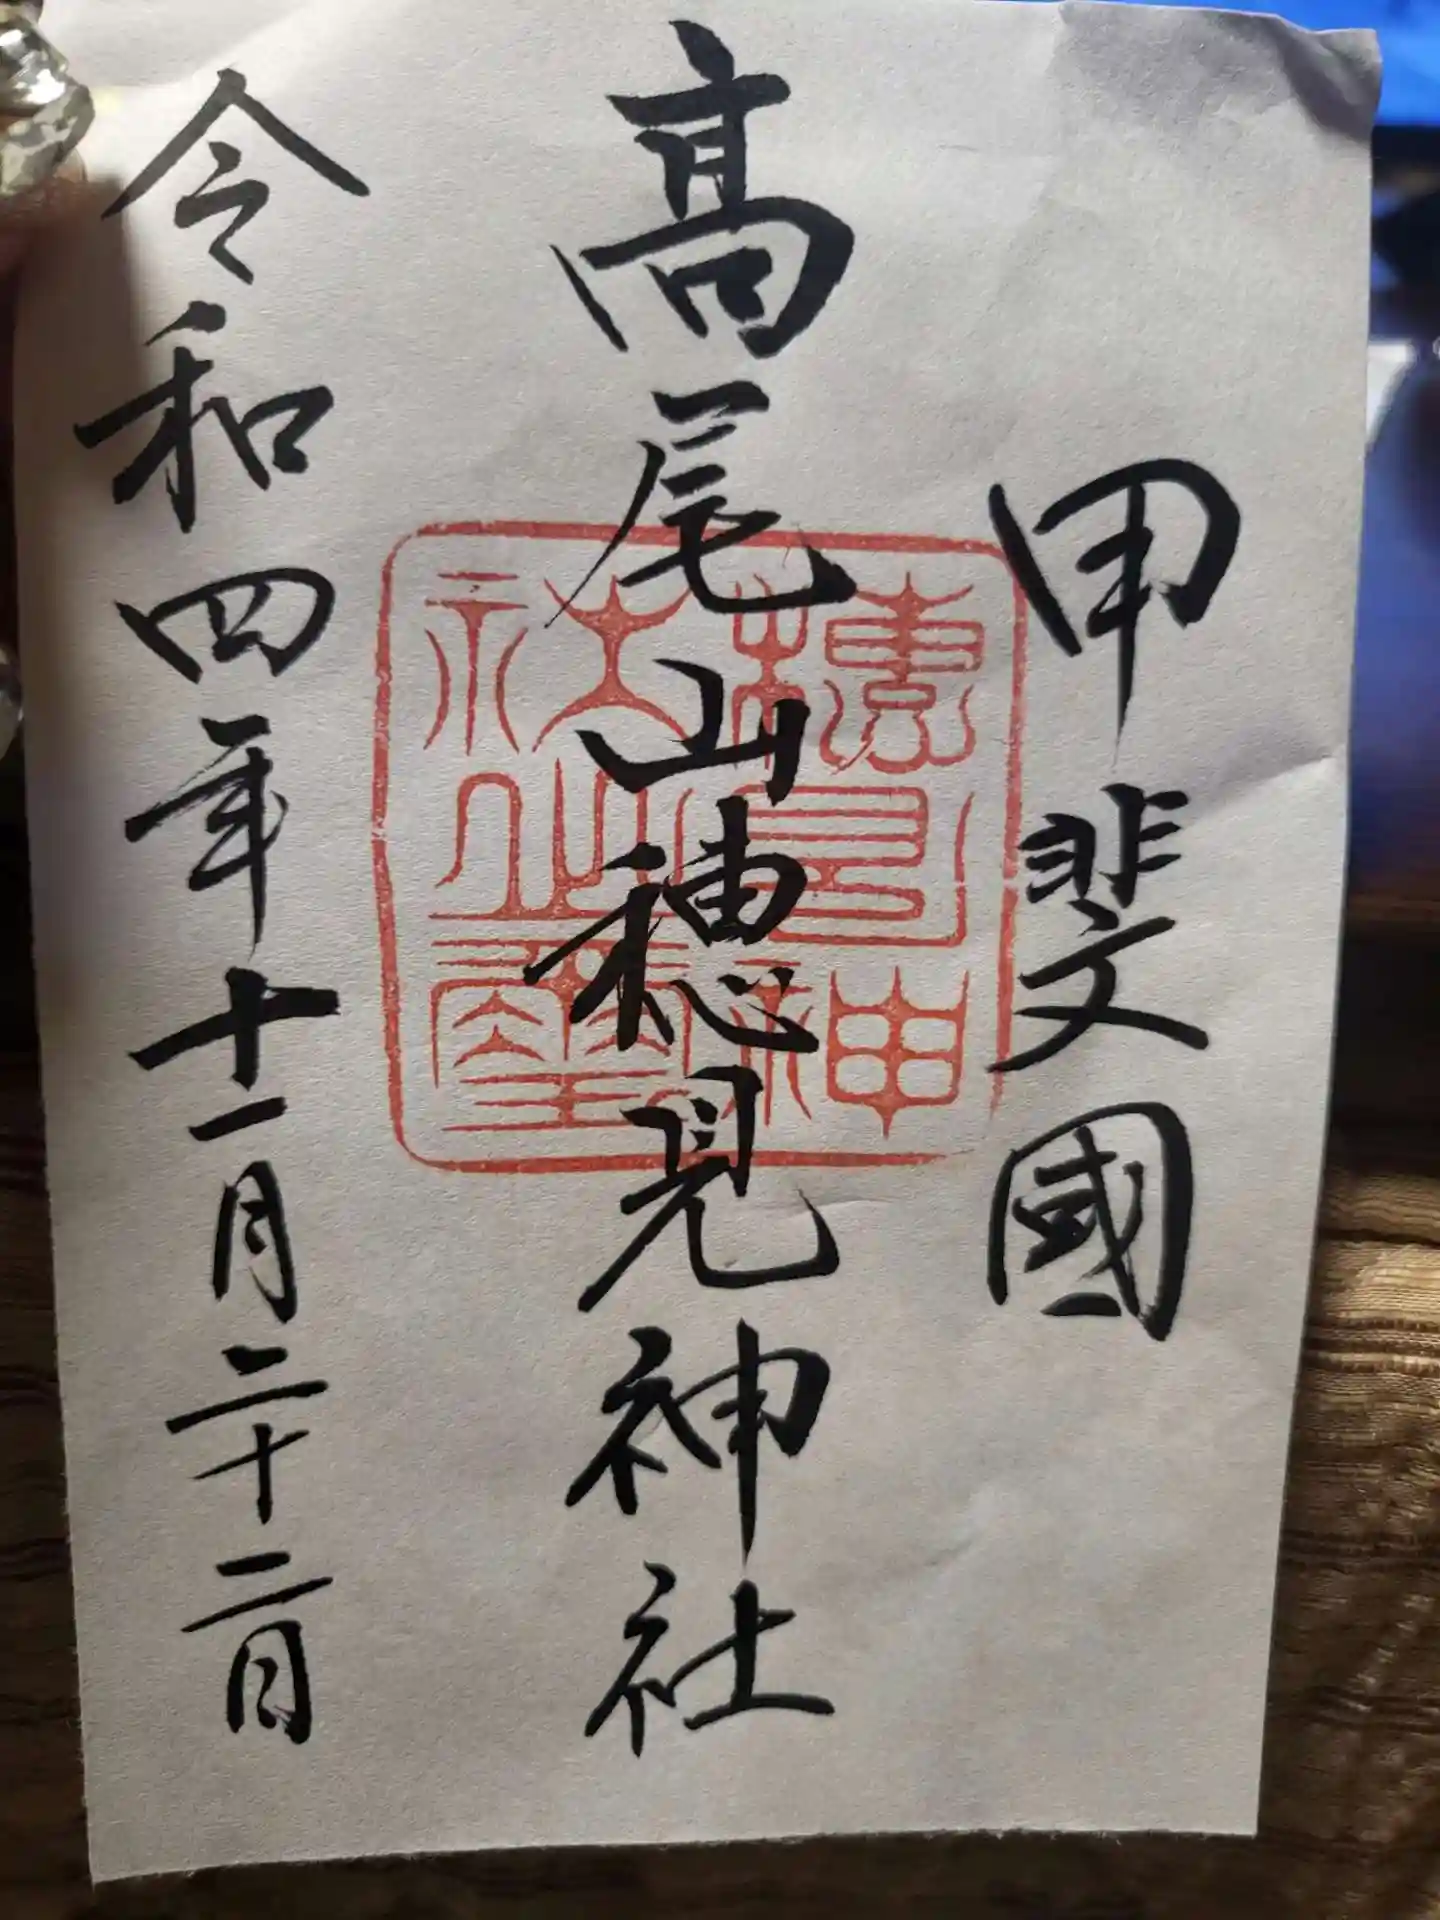 甲斐國
高尾山穂見神社
穂見神社之璽
令和四年十一月二十二日